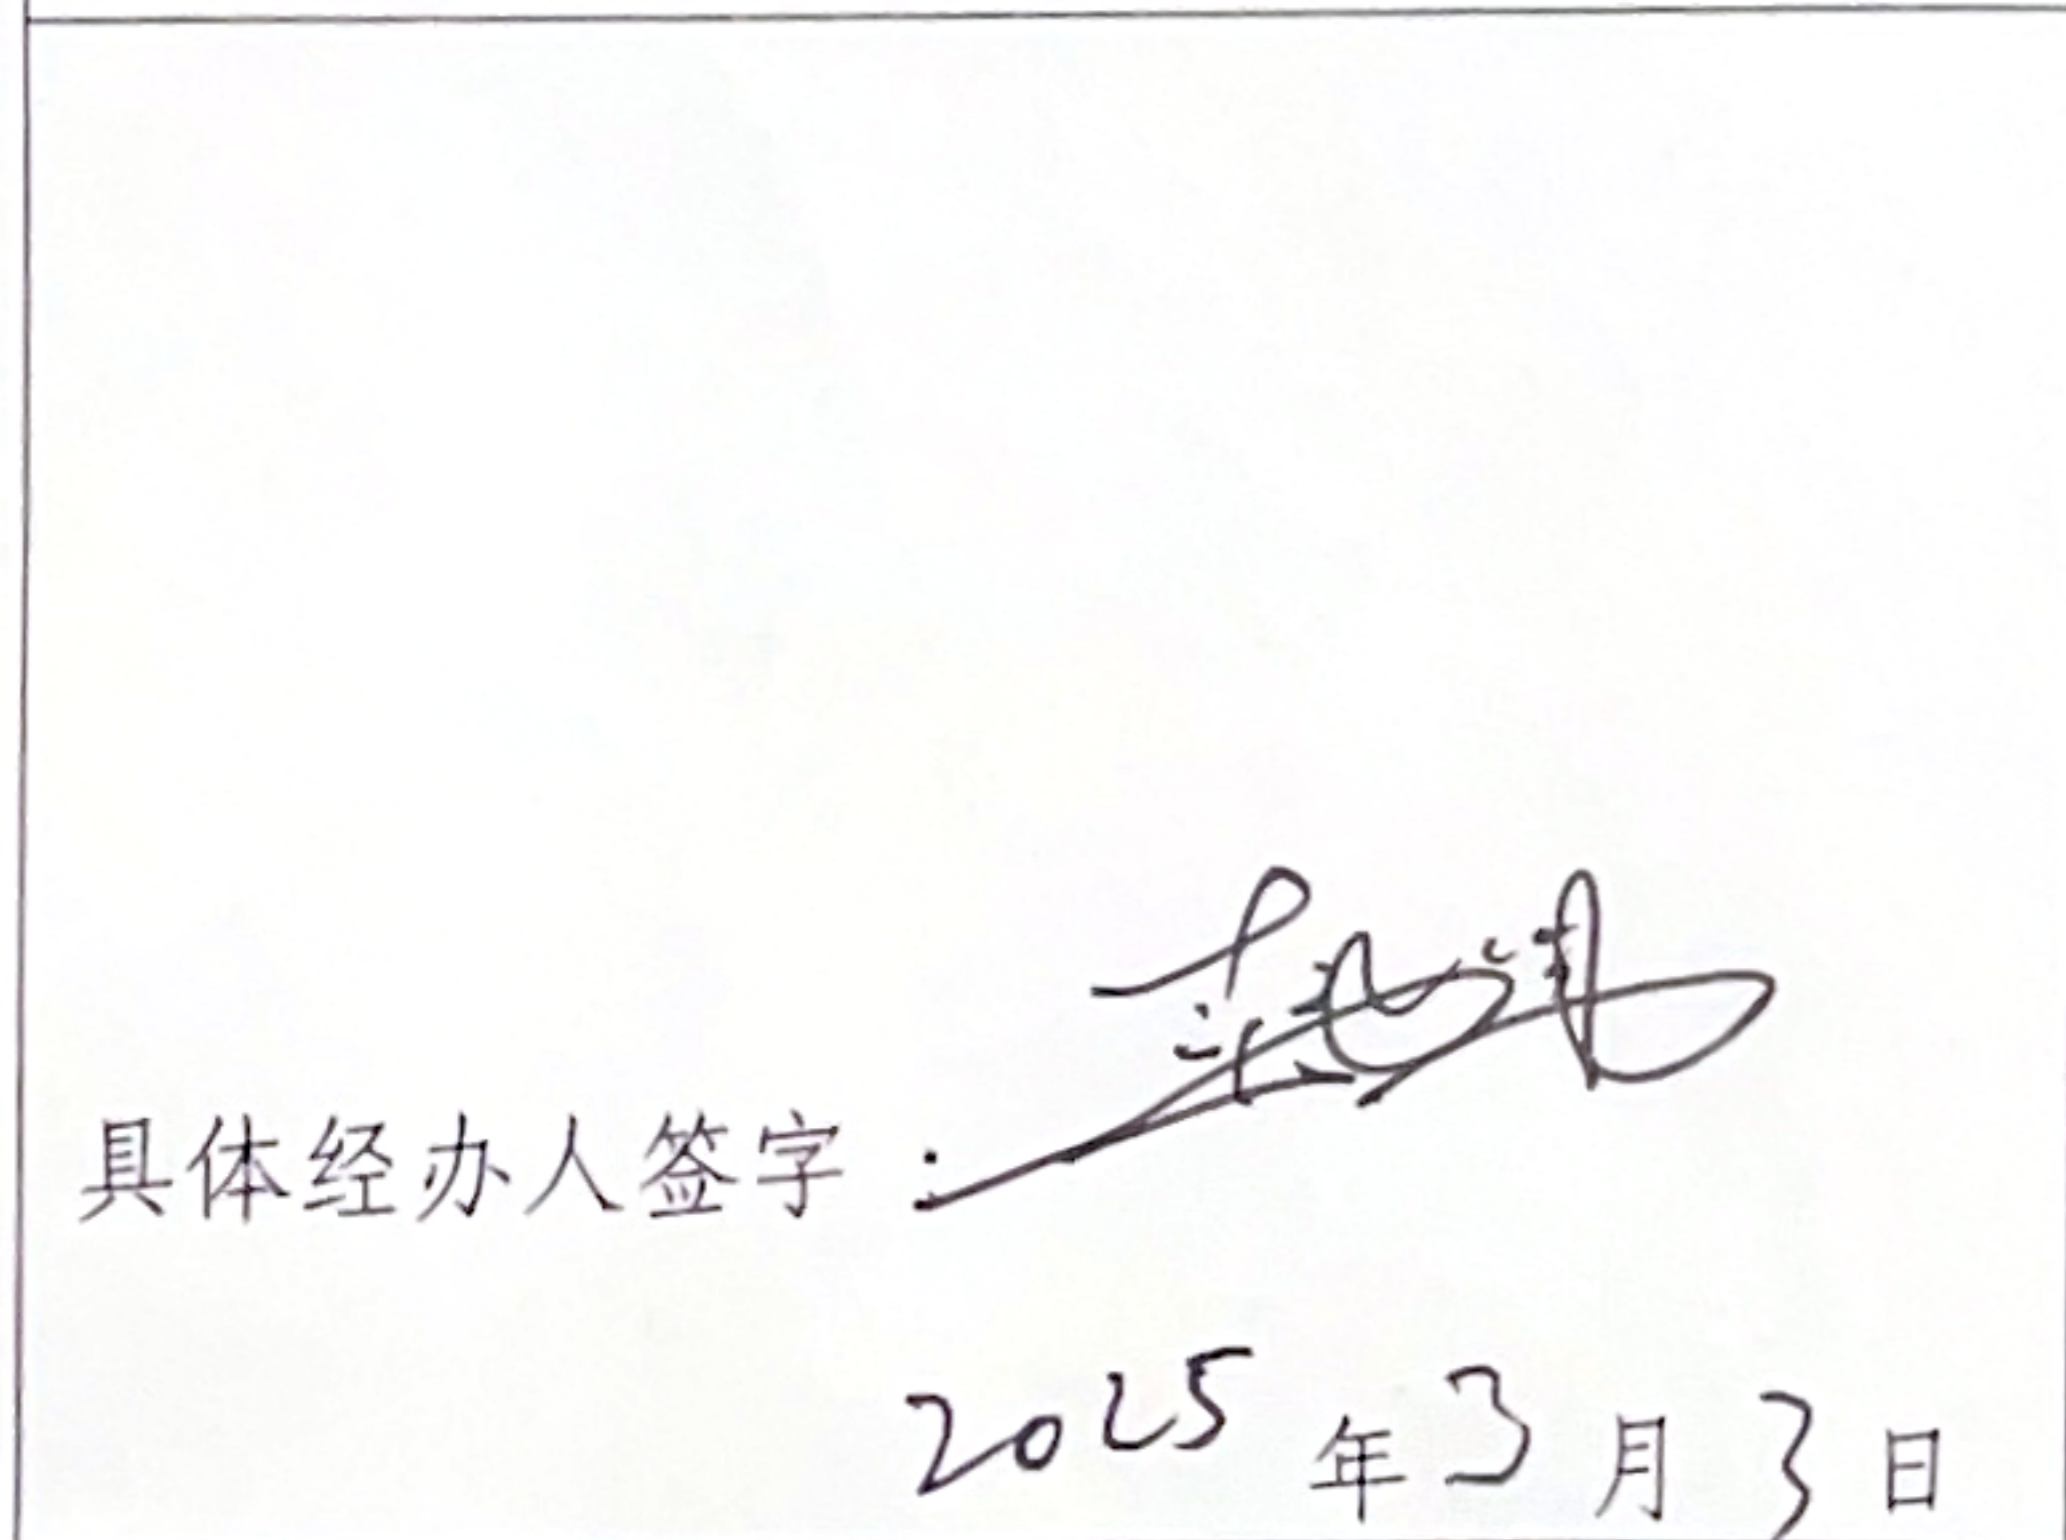 具体经办人签字:
2025年3月3日